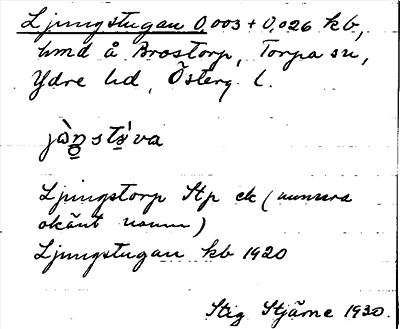 Ljungstugan 0,003 + 0,026 kb,
hmd å Brostorp, Torpa sn,
Ydre hd, Österg. l.
jò̀n̥stùva
Ljungstorp Stp ek (numera
okänt namn)
Ljungstugan kb 1920
Stig Stjärne 1930.